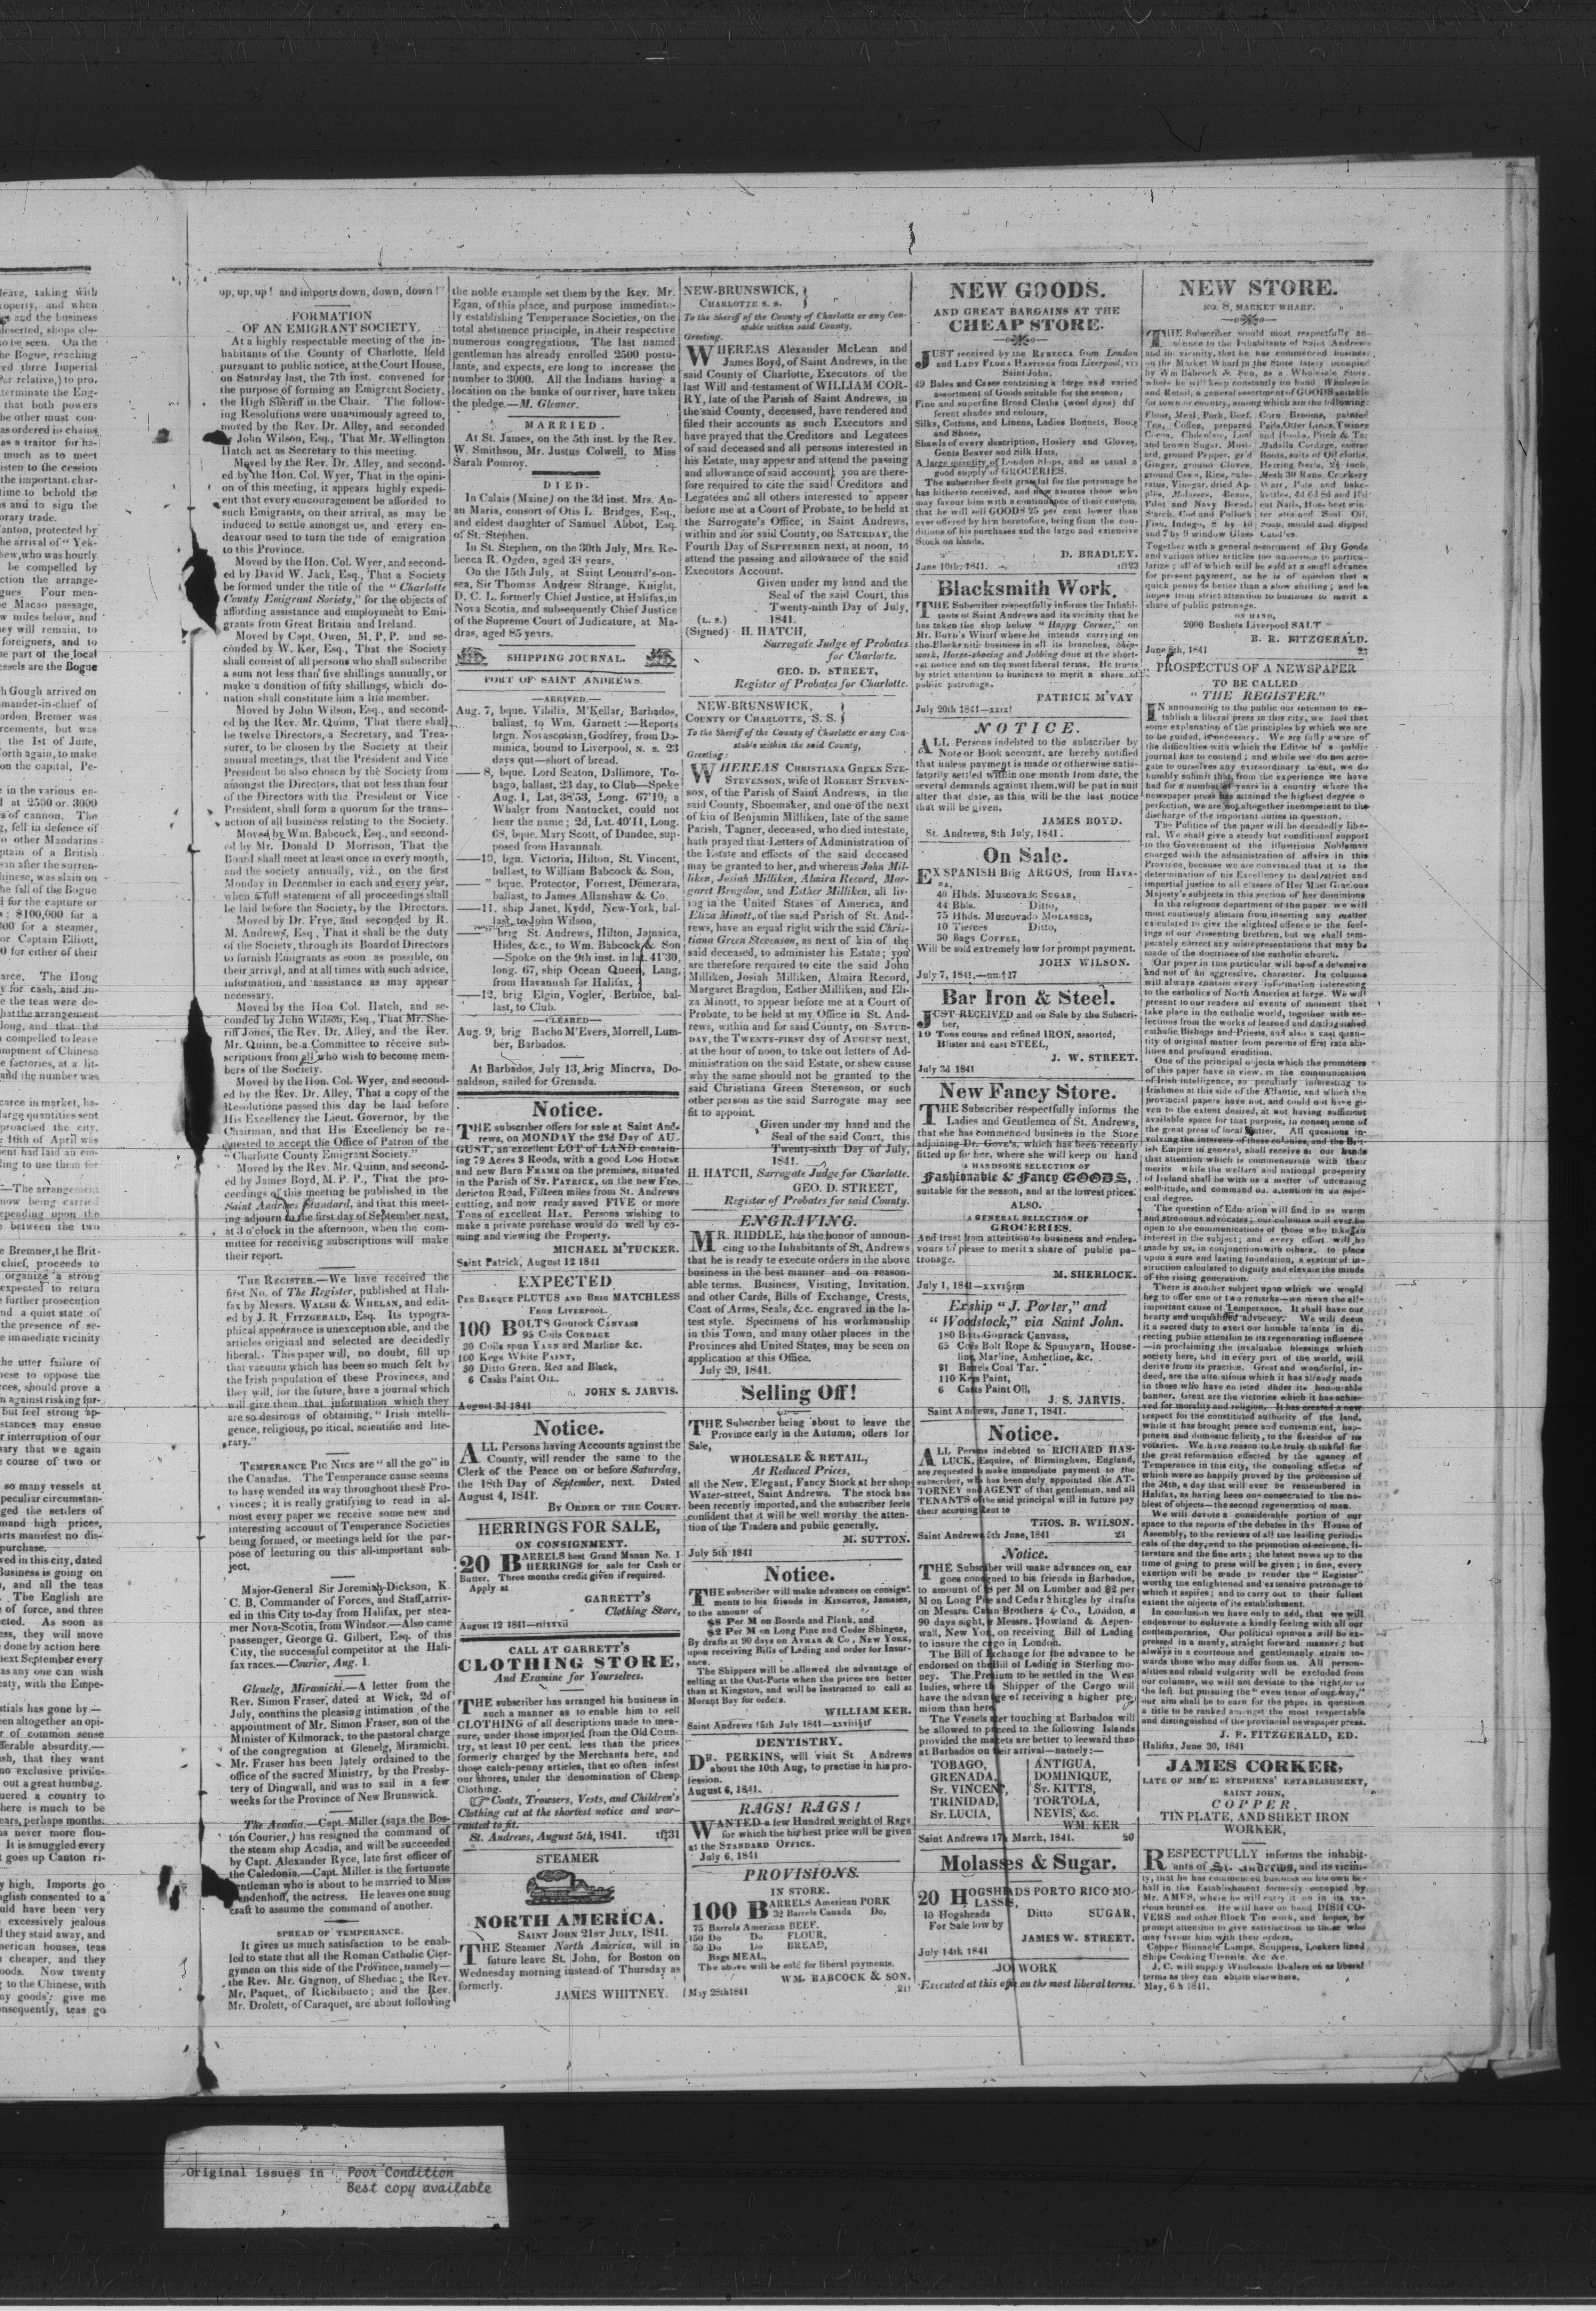 up, up, up! and imports down, down, down!"
FORMATION
OF AN EMIGRANT SOCIETY.
At a highly respectable meeting of the in-
habitants of the County of Charlotte, held
pursuant to public notice, at the Court House,
on Saturday last, the 7th inst. convened for
the purpose of forming an Emigrant Society,
the High Sheriff in the Chair. The follow-
ing Resolutions were unanimously agreed to,
moved by the Rev. Dr. Alley, and seconded
by John Wilson, Esq., That Mr. Wellington
Hatch act as Secretary to this meeting.
Moved by the Rev. Dr. Alley, and second-
ed by the Hon. Col. Wyer, That in the opini-
on of this meeting, it appears highly expedi-
ent that every encouragement be afforded to
such Emigrants, on their arrival, as may be
induced to settle amongst us, and every en-
deavour used to turn the tide of emigration
to this Province.
Moved by the Hon. Col. Wyer, and second-
ed by David W. Jack, Esq., That a Society
be formed under the title of the "Charlotte
County Emigrant Society," for the objects of
affording assistance and employment to Emi-
grants from Great Britain and Ireland.
Moved by Capt. Owen, M. P. P. and se-
conded by W. Ker, Esq., That the Society
shall consist of all persons who shall subscribe
a sum not less than five shillings annually, or
make a donation of fifty shillings, which do-
nation shall constitute him a life member.
Moved by John Wilson, Esq., and second-
ed by the Rev. Mr. Quinn, That there shall
be twelve Directors, a Secretary, and Trea-
surer, to be chosen by the Society at their
annual meetings, that the President and Vice
President be also chosen by the Society from
amongst the Directors, that not less than four
of the Directors with the President or Vice
President, shall form a quorum for the trans-
action of all business relating to the Society.
Moved by Wm. Babcock, Esq., and second-
ed by Mr. Donald D Morrison, That the
Board shall meet at least once in every month,
and the society annually, viz., on the first
Monday in December in each and every year,
when a full statement of all proceedings shall
be laid before the Society, by the Directors.
Moved by Dr. Frye, and seconded by R.
M. Andrews, Esq., That it shall be the duty
of the Society, through its Board of Directors
to furnish Emigrants as soon as possible, on
their arrival, and at all times with such advice,
information, and assistance as may appear
necessary.
Moved by the Hon Col. Hatch, and se-
conded by John Wilson, Esq., That Mr. She-
riff Jones, the Rev. Dr. Alley, and the Rev.
Mr. Quinn, be a Committee to receive sub-
scriptions from all who wish to become mem-
bers of the Society.
Moved by the Hon. Col. Wyer, and second-
ed by the Rev. Dr. Alley, That a copy of the
Resolutions passed this day be laid before
His Excellency the Lieut. Governor, by the
Chairman, and that His Excellency be re-
quested to accept the Office of Patron of the
"Charlotte County Emigrant Society."
Moved by the Rev. Mr. Quinn, and second-
ed by James Boyd, M. P. P., That the pro-
ceedings of this meeting be published in the
Saint Andrews Standard, and that this meet-
ing adjourn to the first day of September next,
at 3 o'clock in the afternoon, when the com-
mittee for receiving subscriptions will make
their report.
THE REGISTER.—We have received the
first No. of The Register, published at Hali-
fax by Messrs. WALSH & WHELAN, and edit-
ed by J. R. FITZGERALD, Esq. Its typogra-
phical appearance is unexceptionable, and the
articles original and selected are decidedly
liberal. This paper will, no doubt, fill up
that vacuum which has been so much felt by
the Irish population of these Provinces, and
they will, for the future, have a journal which
will give them that information which they
are so desirous of obtaining, "Irish intelli-
gence, religious, po itical, scientific and lite-
rary."
TEMPERANCE PIC NICS are "all the go" in
the Canadas. The Temperance cause seems
to have wended its way throughout these Pro-
vinces; it is really gratifying to read in al-
most every paper we receive some new and
interesting account of Temperance Societies
being formed, or meetings held for the pur-
pose of lecturing on this all-important sub-
ject.
Major-General Sir Jeremiah Dickson, K.
C. B, Commander of Forces, and Staff, arriv-
ed in this City to-day from Halifax, per stea-
mer Nova-Scotia, from Windsor.—Also came
passenger, George G. Gilbert, Esq. of this
City, the successful competitor at the Hali-
fax races.—Courier, Aug. 1.
Glenelg, Miramichi.—A letter from the
Rev. Simon Fraser, dated at Wick, 2d of
July, contains the pleasing intimation of the
appointment of Mr. Simon Fraser, son of the
Minister of Kilmorack, to the pastoral charge
of the congregation at Glenelg, Miramichi.
Mr. Fraser has been lately ordained to the
office of the sacred Ministry, by the Presby-
tery of Dingwall, and was to sail in a few
weeks for the Province of New Brunswick.
The Acadia.—Capt. Miller (says the Bos-
ton Courier,) has resigned the command of
the steam ship Acadia, and will be succeeded
by Capt. Alexander Ryce, late first officer of
the Caledonia.—Capt. Miller is the fortunate
gentleman who is about to be married to Miss
endenhoff, the actress. He leaves one snug
craft to assume the command of another.
SPREAD OF TEMPERANCE.
It gives us much satisfaction to be enab-
led to state that all the Roman Catholic Cler-
gymen on this side of the Province, namely—
the Rev. Mr. Gagnon, of Shediac; the Rev.
Mr. Paquet, of Richibucto; and the Rev.
Mr. Drolett, of Caraquet, are about following
the noble example set them by the Rev. Mr.
Egan, of this place, and purpose immediate-
ly establishing Temperance Societies, on the
total abstinence principle, in their respective
numerous congregations. The last named
gentleman has already enrolled 2500 postu-
lants, and expects, ere long to increase the
number to 3000. All the Indians having a
location on the banks of our river, have taken
the pledge.—M. Gleaner.
MARRIED.
At St. James, on the 5th inst. by the Rev.
W. Smithson, Mr. Justus Colwell, to Miss
Sarah Pomroy.
DIED.
In Calais (Maine) on the 3d inst. Mrs. An-
an Maria, consort of Otis L. Bridges, Esq.,
and eldest daughter of Samuel Abbot, Esq.
of St. Stephen.
In St. Stephen, on the 30th July, Mrs. Re-
becca R. Ogden, aged 38 years.
On the 15th July, at Saint Leonard's-on-
sea, Sir Thomas Andrew Strange, Knight,
D. C. L. formerly Chief Justice, at Halifax, in
Nova Scotia, and subsequently Chief Justice
of the Supreme Court of Judicature, at Ma-
dras, aged 85 years.
SHIPPING JOURNAL.
PORT OF SAINT ANDREWS.
—ARRIVED—
Aug. 7, bque. Vibilia, M'Kellar, Barbados,
ballast, to Wm. Garnett:—Reports
brgn. Novascotian, Godfrey, from Do-
minica, bound to Liverpool, N. S. 23
days out—short of bread.
—— 8, bque. Lord Seaton, Dallimore, To-
bago, ballast, 23 day, to Club—Spoke
Aug. 1, Lat. 38'53, Long. 67'19, a
Whaler from Nantucket, could not
hear the name; 2d, Lat. 40'11, Long.
68, bque. Mary Scott, of Dundee, sup-
posed from Havannah.
——10, bgn. Victoria, Hilton, St. Vincent,
ballast, to William Babcock & Son,
—— " bque. Protector, Forrest, Demerara,
ballast, to James Allanshaw & Co.
——11, ship Janet, Kydd, New-York, bal-
last, to John Wilson,
—— " brig St. Andrews, Hilton, Jamaica,
Hides, &c., to Wm. Babcock & Son
—Spoke on the 9th inst. in lat. 41'30,
long. 67, ship Ocean Queen, Lang,
from Havannah for Halifax,
——12, brig Elgin, Vogler, Berbice, bal-
last, to Club.
—CLEARED—
Aug. 9, brig Bacho M'Evers, Morrell, Lum-
ber, Barbados.
At Barbados, July 13, brig Minerva, Do-
naldson, sailed for Grenada.
Notice.
THE subscriber offers for sale at Saint And-
rews, on MONDAY the 23d Day of AU-
GUST, an excellent LOT of LAND contain-
ing 79 Acres 3 Roods, with a good LOG HOUSE
and new Barn FRAME on the premises, situated
in the Parish of ST. PATRICK, on the new Fre-
dericton Road, Fifteen miles from St. Andrews
cutting, and now ready saved FIVE or more
Tons of excellent HAY. Persons wishing to
make a private purchase would do well by co-
ming and viewing the Property.
MICHAEL M'TUCKER.
Saint Patrick, August 12 1841
EXPECTED
PER BARQUE PLUTUS AND BRIG MATCHLESS
FROM LIVERPOOL.
100 BOLTS Gourock CANVASS
95 Coils CORDAGE
30 Coils spun YARN and Marline &c.
100 Kegs White PAINT,
30 Ditto Green, Red and Black,
6 Casks Paint OIL.
JOHN S. JARVIS.
August 3d 1841
Notice.
ALL Persons having Accounts against the
County, will render the same to the
Clerk of the Peace on or before Saturday,
the 18th Day of September, next. Dated
August 4, 1841.
BY ORDER OF THE COURT.
HERRINGS FOR SALE,
ON CONSIGNMENT.
20 BARRELS best Grand Manan No. 1
HERRINGS for sale for Cash or
Butter. Three months credit given if required.
Apply at
GARRETT's
Clothing Store,
August 12 1841
CALL AT GARRETT'S
CLOTHING STORE,
And Examine for Yourselves.
THE subscriber has arranged his business in
such a manner as to enable him to sell
CLOTHING of all descriptions made to mea-
sure, under those imported from the Old Coun-
try, at least 10 per cent. less than the prices
formerly charged by the Merchants here, and
those catch-penny articles, that so often infest
our shores, under the denomination of Cheap
Clothing.
Coats, Trowsers, Vests, and Children's
Clothing cut at the shortest notice and war-
ranted to fit.
St. Andrews, August 5th, 1841.
STEAMER
NORTH AMERICA.
SAINT JOHN 21ST JULY, 1841.
THE Steamer North America, will in
future leave St. John, for Boston on
Wednesday morning instead of Thursday as
formerly.
JAMES WHITNEY.
NEW-BRUNSWICK,
CHARLOTTE S. S.
To the Sheriff of the County of Charlotte or any Con-
stable within said County,
Greeting.
WHEREAS Alexander McLean and
James Boyd, of Saint Andrews, in the
said County of Charlotte, Executors of the
last Will and testament of WILLIAM COR-
RY, late of the Parish of Saint Andrews, in
the said County, deceased, have rendered and
filed their accounts as such Executors and
have prayed that the Creditors and Legatees
of said deceased and all persons interested in
his Estate, may appear and attend the passing
and allowance of said account; you are there-
fore required to cite the said Creditors and
Legatees and all others interested to appear
before me at a Court of Probate, to be held at
the Surrogate's Office, in Saint Andrews,
within and for said County, on SATURDAY, the
Fourth Day of SEPTEMBER next, at noon, to
attend the passing and allowance of the said
Executors Account.
Given under my hand and the
Seal of the said Court, this
Twenty-ninth Day of July,
(L. S.) 1841.
(Signed) H. HATCH,
Surrogate Judge of Probates
for Charlotte.
GEO. D. STREET,
Register of Probates for Charlotte.
NEW-BRUNSWICK,
COUNTY OF CHARLOTTE, S. S.
To the Sheriff of the County of Charlotte or any Con-
stable within the said County,
Greeting:
WHEREAS CHRISTIANA GREEN STE-
STEVENSON, wife of ROBERT STEVEN-
SON, of the Parish of Saint Andrews, in the
said County, Shoemaker, and one of the next
of kin of Benjamin Milliken, late of the same
Parish, Tanner, deceased, who died intestate,
hath prayed that Letters of Administration of
the Estate and effects of the said deceased
may be granted to her, and whereas John Mil-
liken, Josiah Milliken, Almira Record, Mar-
garet Bragdon, and Esther Milliken, all liv-
ing in the United States of America, and
Eliza Minott, of the said Parish of St. And-
rews, have an equal right with the said Chris-
tiana Green Stevenson, as next of kin of the
said deceased, to administer his Estate; you
are therefore required to cite the said John
Milliken, Josiah Milliken, Almira Record,
Margaret Bragdon, Esther Milliken, and Eli-
za Minott, to appear before me at a Court of
Probate, to be held at my Office in St. And-
rews, within and for said County, on SATUR-
DAY, the TWENTY-FIRST day of AUGUST next,
at the hour of noon, to take out letters of Ad-
ministration on the said Estate, or shew cause
why the same should not be granted to the
said Christiana Green Stevenson, or such
other person as the said Surrogate may see
fit to appoint.
Given under my hand and the
Seal of the said Court, this
Twenty-sixth Day of July,
1841.
H. HATCH, Surrogate Judge for Charlotte.
GEO. D. STREET,
Register of Probates for said County.
ENGRAVING.
MR. RIDDLE, has the honor of announ-
cing to the Inhabitants of St. Andrews
that he is ready to execute orders in the above
business in the best manner and on reason-
able terms. Business, Visiting, Invitation,
and other Cards, Bills of Exchange, Crests,
Coat of Arms, Seals, &c. engraved in the la-
test style. Specimens of his workmanship
in this Town, and many other places in the
Provinces and United States, may be seen on
application at this Office.
July 29, 1841.
Selling Off!
THE Subscriber being about to leave the
Province early in the Autumn, offers for
Sale,
WHOLESALE & RETAIL,
At Reduced Prices,
all the New, Elegant, Fancy Stock at her shop
Water-street, Saint Andrews. The stock has
been recently imported, and the subscriber feels
confident that it will be well worthy the atten-
tion of the Traders and public generally.
M. SUTTON.
July 5th 1841
Notice.
THE subscriber will make advances on consign-
ments to his friends in KINGSTON, Jamaica,
to the amount of
$8 Per M on Boards and Plank, and
$2 Per M on Long Pine and Cedar Shinges,
By drafts at 90 days on AYMAR & Co, NEW YORK,
upon receiving Bills of Leding and order for Insur-
ance.
The Shippers will be allowed the advantage of
selling at the Out-Ports when the prices are better
than at Kingston, and will be instructed to call at
Morant Bay for orders.
WILLIAM KER.
Saint Andrews 15th July 1841
DENTISTRY.
DR. PERKINS, will visit St Andrews
about the 10th Aug, to practise in his pro-
fession.
August 6, 1841.
RAGS! RAGS!
WANTED a few Hundred weight of Rags
for which the highest price will be given
at the STANDARD OFFICE.
July 6, 1841.
PROVISIONS.
IN STORE.
100 BARRELS American PORK
32 Barrels Canada Do,
75 Barrels American BEEF.
150 Do Do FLOUR,
50 Do Do BREAD,
Bags MEAL,
The above will be sold for liberal payments.
WM. BABCOCK & SON.
May 28th 1841
NEW GOODS.
AND GREAT BARGAINS AT THE
CHEAP STORE.
JUST received by the REBECCA from London
and LADY FLORA HASTINGS from Liverpool, via
Saint John,
49 Bales and Cases containing a large and varied
assortment of Goods suitable for the season,
Fine and superfine Broad Cloths (wool dyes) dif
ferent shades and colours,
Silks, Cottons, and Linens, Ladies Bonnets, Boots
and Shoes,
Shawls of every description, Hosiery and Gloves,
Gents Beaver and Silk Hats,
A large quantity of London Slops, and as usual a
good supply of GROCERIES.
The subscriber feels grateful for the patronage he
has hitherto received, and now assures those who
may favour him with a continuance of their custom,
that he will sell GOODS 25 per cent lower than
ever offered by him heretofore, being from the con-
ditions of his purchases and the large and extensive
Stock on hands.
D. BRADLEY.
June 10th, 1841.
Blacksmith Work.
THE Subscriber respectfully informs the Inhabi-
tants of Saint Andrews and its vicinity that he
has taken the shop below "Happy Corner," on
Mr. BOYD's Wharf where he intends carrying on
the Blacksmith business in all its branches, Ship-
work, Horse-shoeing and Jobbing done at the short-
est notice and on the most liberal terms. He trusts
by strict attention to business to merit a share of
public patronage.
PATRICK M'VAY
July 20th 1841
NOTICE.
ALL Persons indebted to the subscriber by
Note or Book account, are hereby notified
that unless payment is made or otherwise satis-
fatorily settled within one month from date, the
several demands against them, will be put in suit
after that date, as this will be the last notice
that will be given.
JAMES BOYD.
St. Andrews, 8th July, 1841.
On Sale.
EX SPANISH Brig ARGOS, from HAVA-
NA,
40 Hhds. Muscovado SUGAR,
44 Bbls. Ditto,
75 Hhds. Muscovado MOLASSES,
10 Tierces Ditto,
30 Bags COFFEE,
Will be sold extremely low for prompt payment.
JOHN WILSON.
July 7, 1841.
Bar Iron & Steel.
JUST RECEIVED and on Sale by the Subscri-
ber,
10 Tons course and refined IRON, assorted,
Blister and cast STEEL,
J. W. STREET.
July 3d 1841
New Fancy Store.
THE Subscriber respectfully informs the
Ladies and Gentlemen of St. Andrews,
that she has commenced business in the Store
adjoining Dr. GOVE'S, which has been recently
fitted up for her, where she will keep on hand
A HANDSOME SELECTION OF
Fashionable & Fancy GOODS,
suitable for the season, and at the lowest prices.
ALSO.
A GENERAL SELECTION OF
GROCERIES.
And trust from attention to business and endea-
vours to please to merit a share of public pa-
tronage.
M. SHERLOCK.
July 1, 1841
Ex ship "J. Porter," and
"Woodstock," via Saint John.
180 Bolts Gourack Canvass,
65 Coils Bolt Rope & Spunyarn, House-
line, Marline, Amherline, &c.
21 Barrels Coal Tar.
110 Kegs Paint,
6 Casks Paint Oil,
J. S. JARVIS.
Saint Andrews, June 1, 1841.
Notice.
ALL Persons indebted to RICHARD HAS-
LUCK, Esquire, of Birmingham, England,
are requested to make immediate payment to the
subscriber, who has been duly appointed the AT-
TORNEY and AGENT of that gentleman, and all
TENANTS of the said principal will in future pay
their accruing Rent to
THOS. B. WILSON.
Saint Andrews 5th June, 1841 23
Notice.
THE Subscriber will make advances on car
goes consigned to his friends in Barbados,
to amount of per M on Lumber and $2 per
M on Long Pine and Cedar Shingles by drafts
on Messrs. Brothers & Co., London, @
90 days sight, Messrs. Howland & Aspen-
wall, New York, on receiving Bill of Lading
to insure the cargo in London.
The Bill of Exchange for the advance to be
endorsed on the Bill of Lading in Sterling mo-
ney. The Premium to be settled in the West
Indies, where the Shipper of the Cargo will
have the advantage of receiving a higher pre-
mium than here.
The Vessels after touching at Barbados will
be allowed to proceed to the following Islands
provided the markets are better to leeward than
at Barbados on their arrival—namely:—
TOBAGO, ANTIGUA,
GRENADA, DOMINIQUE,
ST. VINCENT, ST. KITTS,
TRINIDAD, TORTOLA,
ST. LUCIA, NEVIS, &c.
WM. KER
Saint Andrews 17th March, 1841. 20
Molasses & Sugar.
20 HOGSHEADS PORTO RICO MO-
LASSES,
10 Hogsheads Ditto SUGAR,
For Sale low by
JAMES W. STREET.
July 14th 1841
JOB WORK
Executed at this office on the most liberal terms.
NEW STORE.
NO. 8, MARKET WHARF.
THE Subscriber would most respectfully an-
nounce to the Inhabitants of Saint Andrews
and its vicinity, that he has commenced business
on the Market Wharf in the Store lately occupied
by Wm Babcock & Son, as a Wholesale Store,
where he will keep constantly on hand Wholesale
and Retail, a general assortment of GOODS suitable
for town or country, among which are the following:
Flour, Meal, Pork, Beef, Corn Brooms, painted
Tea, Coffee, prepared Pails, Otter Lines, Twines
Cocoa, Chocolate, Loaf and Hooks, Pitch & Tar
and brown Sugar, Must- Manilla Cordage, coarse
ard, ground Pepper, gr'd Boots, suits of Oil cloths,
Ginger, ground Cloves, Herring Nets, 2½ inch,
ground Cassia, Rice, Sale- Mesh 30 Rans, Crockery
ratus, Vinegar, dried Ap- Ware, Pots and bake-
ples, Molasses, Beans, kettles, 4d 6d 8d and 10d
Pilot and Navy Bread, cut Nails, Hose, best win-
Starch, Cod and Pollock ter strained Seal Oil,
Fish, Indego, 8 by 10 Soap, mould and dipped
and 7 by 9 window Glass Candles.
Together with a general assortment of Dry Goods
and various other articles too numerous to particu-
larize; all of which will be sold at a small advance
for present payment, as he is of opinion that a
quick penny is better than a slow shilling; and he
hopes from strict attention to business to merit a
share of public patronage.
ON HAND,
2000 Bushels Liverpool SALT
B. R. FITZGERALD.
June 8th, 1841 23
PROSPECTUS OF A NEWSPAPER
TO BE CALLED
"THE REGISTER."
IN announcing to the public our intention to es-
tablish a liberal press in this city, we feel that
some explanation of the principles by which we are
to be guided, is necessary. We are fully aware of
the difficulties with which the Editor of a public
journal has to contend; and while we do not arro-
gate to ourselves any extraordinary talent, we do
humbly submit that, from the experience we have
had for a number of years in a country where the
newspaper press has attained the highest degree o
perfection, we are not altogether incompetent to the
discharge of the important duties in question.
The Politics of the paper will be decidedly libe-
ral. We shall give a steady but conditional support
to the Government of the illustrious Nobleman
charged with the administration of affairs in this
Province, because we are convinced that it is the
determination of his Excellency to deal strict and
impartial justice to all classes of Her Most Gracious
Majesty's subjects in this section of her dominions
In the religious department of the paper we will
most cautiously abstain from inserting any matter
calculated to give the slighted offence to the feel-
ings of our dissenting brethren, but we shall tem-
perately correct any misrepresentations that may be
made of the doctrines of the catholic church.
Our paper in this particular will be of a defensive
and not of an aggressive, character. Its columns
will always contain every information interesting
to the catholics of North America at large. We will
present to our readers all events of moment that
take place in the catholic world, together with se-
lections from the works of learned and distinguished
catholic Bishops and Priests, and also a vast quan-
tity of original matter from persons of first rate abi-
lities and profound erudition.
One of the principal objects which the promoters
of this paper have in view, in the communication
of Irish intelligence, so peculiarly interesting to
Irishmen at this side of the Atlantic, and which the
provincial papers have not, and could not have gi-
ven to the extent desired, at not having sufficient
available space for that purpose, in consequence of
the great press of local matter. All questions in-
volving the interests of these colonies, and the Brit-
ish Empire in general, shall receive at our hands
that attention which is commensurate with their
merits while the welfare and national prosperity
of Ireland shall be with us a matter of unceasing
solicitude, and command our attention in an espe-
cial degree.
The question of Education will find in us warm
and strenuous advocates; our columns will ever be
open to the communications of those who take an
interest in the subject; and every effort will be
made by us, in conjunction with others, to place
upon a sure and lasting foundation, a system of in-
struction calculated to dignity and elevate the minds
of the rising generation.
There is another subject upon which we would
beg to offer one or two remarks—we mean the all-
important cause of Temperance. It shall have our
hearty and unqualified advocacy. We will deem
it a sacred duty to exert our humble talents in di-
recting public attention to its regenerating influence
—in proclaiming the invaluable blessings which
society here, and in every part of the world, will
derive from its practice. Great and wonderful, in-
deed, are the alterations which it has already made
in those who have enlisted under its honourable
banner. Great are the victories which it has achie-
ved for morality and religion. It has created a new
respect for the constituted authority of the land,
while it has brought peace and contentment, hap-
piness and domestic felicity, to the firesides of its
votaries. We have reason to be truly thankful for
the great reformation effected by the agency of
Temperance in this city, the consoling effects of
which were so happily proved by the procession of
the 24th, a day that will ever be remembered in
Halifax, as having been one consecrated to the no-
blest of objects—the second regeneration of man.
We will devote a considerable portion of our
space to the reports of the debates in the House of
Assembly, to the reviews of all the leading periodi-
cals of the day, and to the promotion of science, li-
terature and the fine arts; the latest news up to the
time of going to press will be given; in fine, every
exertion will be made to render the "Register"
worthy the enlightened and extensive patronage to
which it aspires; and to carry out to their fullest
extent the objects of its establishment.
In conclusion we have only to add, that we will
endeavour to cultivate a kindly feeling with all our
contemporaries. Our political opinions will be ex-
pressed in a manly, straight forward manner; but
always in a courteous and gentlemanly strain to-
wards those who may differ from us. All person-
alities and ribald vulgarity will be excluded from
our columns, we will not deviate to the right or to
the left but pursuing the "even tenor of our way,"
our aim shall be to earn for the paper in question
a title to be ranked amongst the most respectable
and distinguished of the provincial newspaper press.
J. R. FITZGERALD, ED.
Halifax, June 30, 1841
JAMES CORKER,
LATE OF MR. E: STEPHENS' ESTABLISHMENT,
SAINT JOHN,
COPPER,
TIN PLATE, AND SHEET IRON
WORKER,
RESPECTFULLY informs the inhabit-
ants of St. Andrews, and its vicini-
ty, that he has commenced business on his own be-
half in the Establishment formerly occupied by
Mr. AMES, where he will carry it on in its va-
rious branches. He will have on hand DISH CO-
VERS and other Block Tin work, and hopes, by
prompt attention to give satisfaction to those who
may favour him with their orders.
Copper Binnacle Lamps, Scuppers, Lookers lined
Ships Cooking Utensils, &c &c.
J. C. will supply Wholesale Dealers on as liberal
terms as they can obtain elsewhere.
May, 6 h 1841.
Original issues in Poor Condition
Best copy available